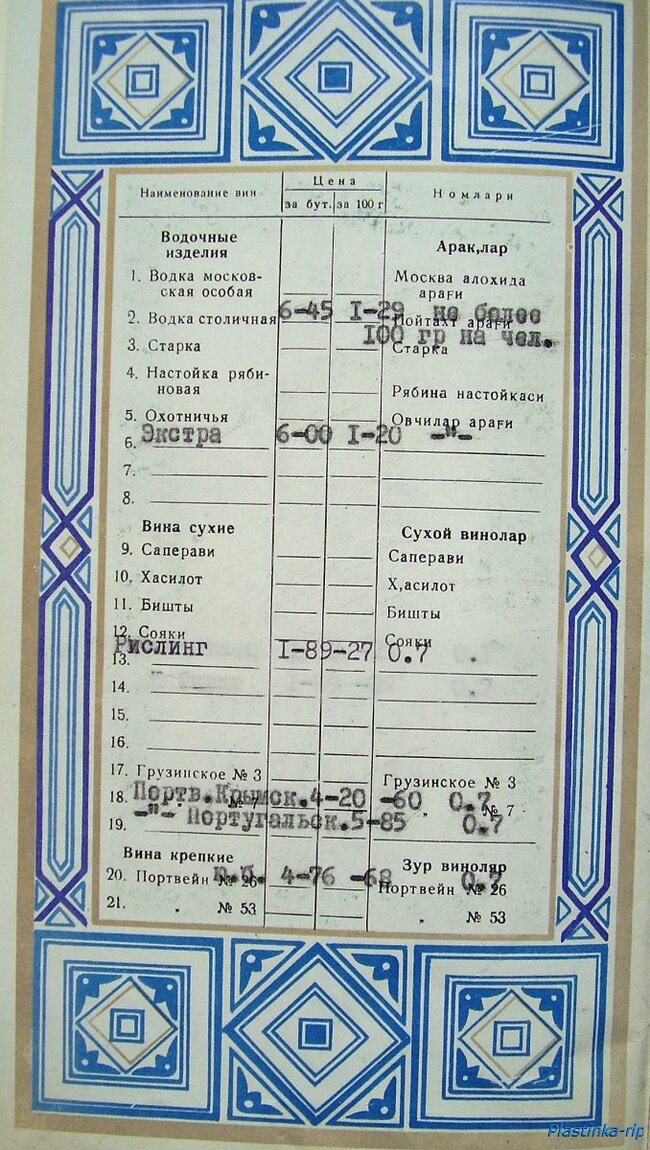 Наименование вин Цена Номлари
за бут. за 100 г
Водочные изделия Арак,лар
1. Водка московская особая Москва алохида арағи
2. Водка столичная 6-45 I-29 не более Пойтахт арағи
100 гр на чел.
3. Старка Старка
4. Настойка рябиновая Рябина настойкаси
5. Охотничья Овчилар арағи
6. Экстра 6-00 I-20 -"-
7.
8.
Вина сухие Сухой винолар
9. Саперави Саперави
10. Хасилот Х,асилот
11. Бишты Бишты
12. Сояки Сояки
Рислинг I-89-27 0.7
13.
14.
15.
16.
17. Грузинское № 3 Грузинское № 3
18. Портв.Крымск.4-20 -60 0.7 " № 7
19. -"- Португальск.5-85 0.7
Вина крепкие Зур винолар
20. Портвейн № 26 4-76 -68 0.7 Портвейн № 26
21. " № 53 " № 53
Plastinka-rip